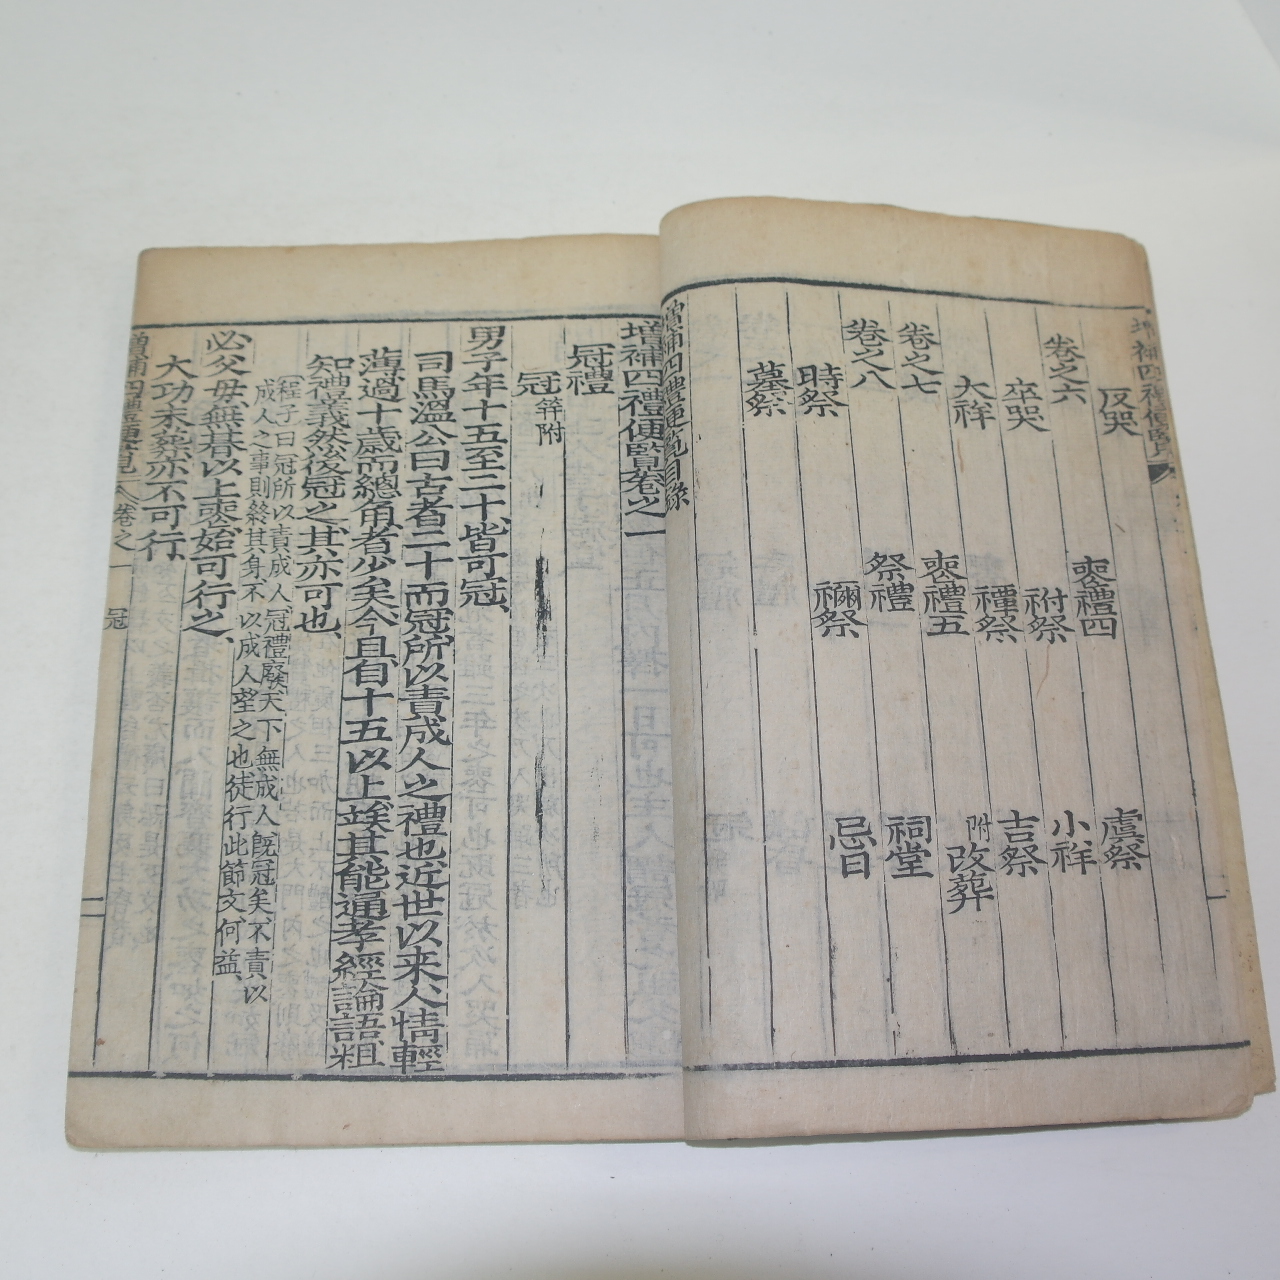 增補四禮便覽
反哭 喪禮四 虞祭
卷之六
卒哭 祔祭 小祥
大祥 禫祭 吉祭
附改葬
卷之七 喪禮五
卷之八 祭禮 祠堂
時祭 禰祭 忌日
墓祭
增補四禮便覽目錄
增補四禮便覽卷之一
冠禮
冠 筓附
男子年十五至二十皆可冠、
司馬溫公曰古者二十而冠所以責成人之禮也、近世以来人情輕
薄過十歲而總角者少矣今且自十五以上、俟其能通孝經論語粗
知禮義然後冠之、其亦可也、
程子曰冠所以責成人、冠禮廢天下無成人旣冠矣、不責以
成人之事則終其身不以成人望之也徒行此節文何益、
必父母無朞以上喪、始可行之、
大功未葬亦不可行、
增補四禮便覽 卷之一 冠 二